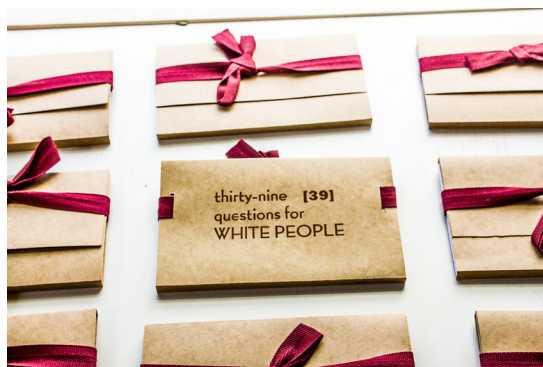 thirty-nine [39]
questions for
WHITE PEOPLE